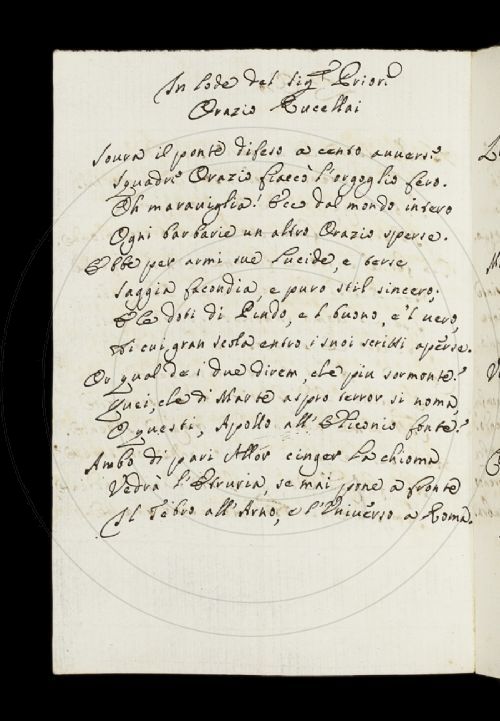 In lode del Sig.r Prior.e
Orazio Rucellai
Soura il ponte difeso a cento auuerse
Squadre Orazio fiaccò l'orgoglio fero.
Oh marauiglia! Fece dal mondo intero
Ogni barbarie un altro Orazio sperse.
Ebbe per armi sue lucide, e terse
saggia facondia, e puro stil sincero;
E le doti di Pindo, e'l buono, e'l uero,
di cui gran scola entro i suoi scritti aperse.
Or qual de i due direm, che piu sormonte?
Quei, che di Marte aspro terror si noma,
O questi, Apollo all'Eliconio fonte?
Ambo di pari Allor cinger la chioma
Vedrà l'Etruria, se mai pone a fronte
Il Tebro all'Arno, e l'Vniuerso a Roma.